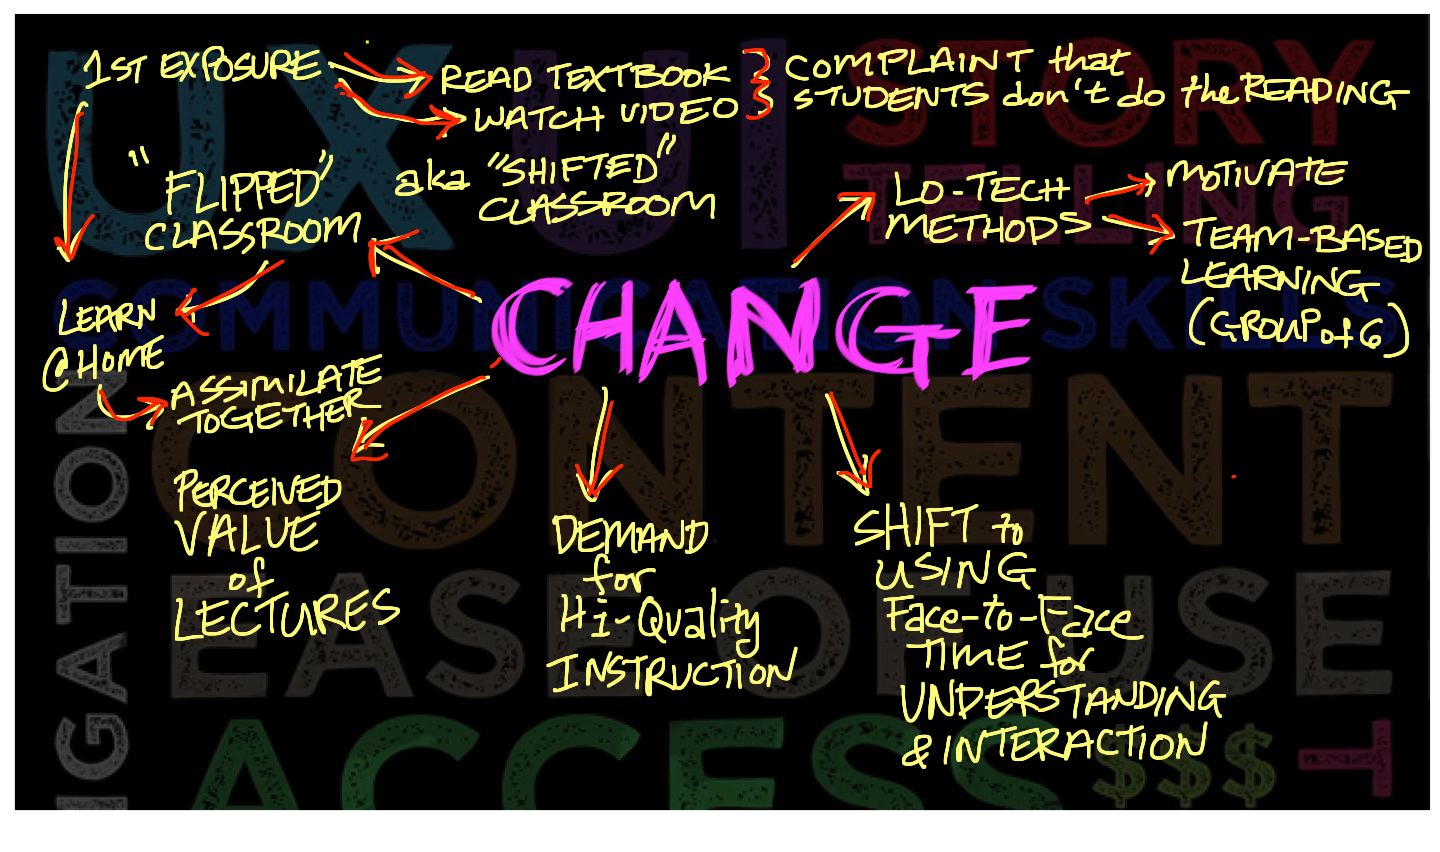 1ST EXPOSURE
READ TEXTBOOK
WATCH VIDEO
COMPLAINT that
STUDENTS don't do the READING
"FLIPPED"
CLASSROOM
aka "SHIFTED"
CLASSROOM
LO-TECH
METHODS
MOTIVATE
TEAM-BASED
LEARNING
(GROUP of 6)
LEARN
@ HOME
ASSIMILATE
TOGETHER
CHANGE
PERCEIVED
VALUE
of
LECTURES
DEMAND
for
Hi-Quality
INSTRUCTION
SHIFT to
USING
Face-to-Face
TIME for
UNDERSTANDING
& INTERACTION
UX UI STORY
TELLING
COMMUNICATION SKILLS
CONTENT
EASE OF USE
ACCESS $$$ T
IGATION